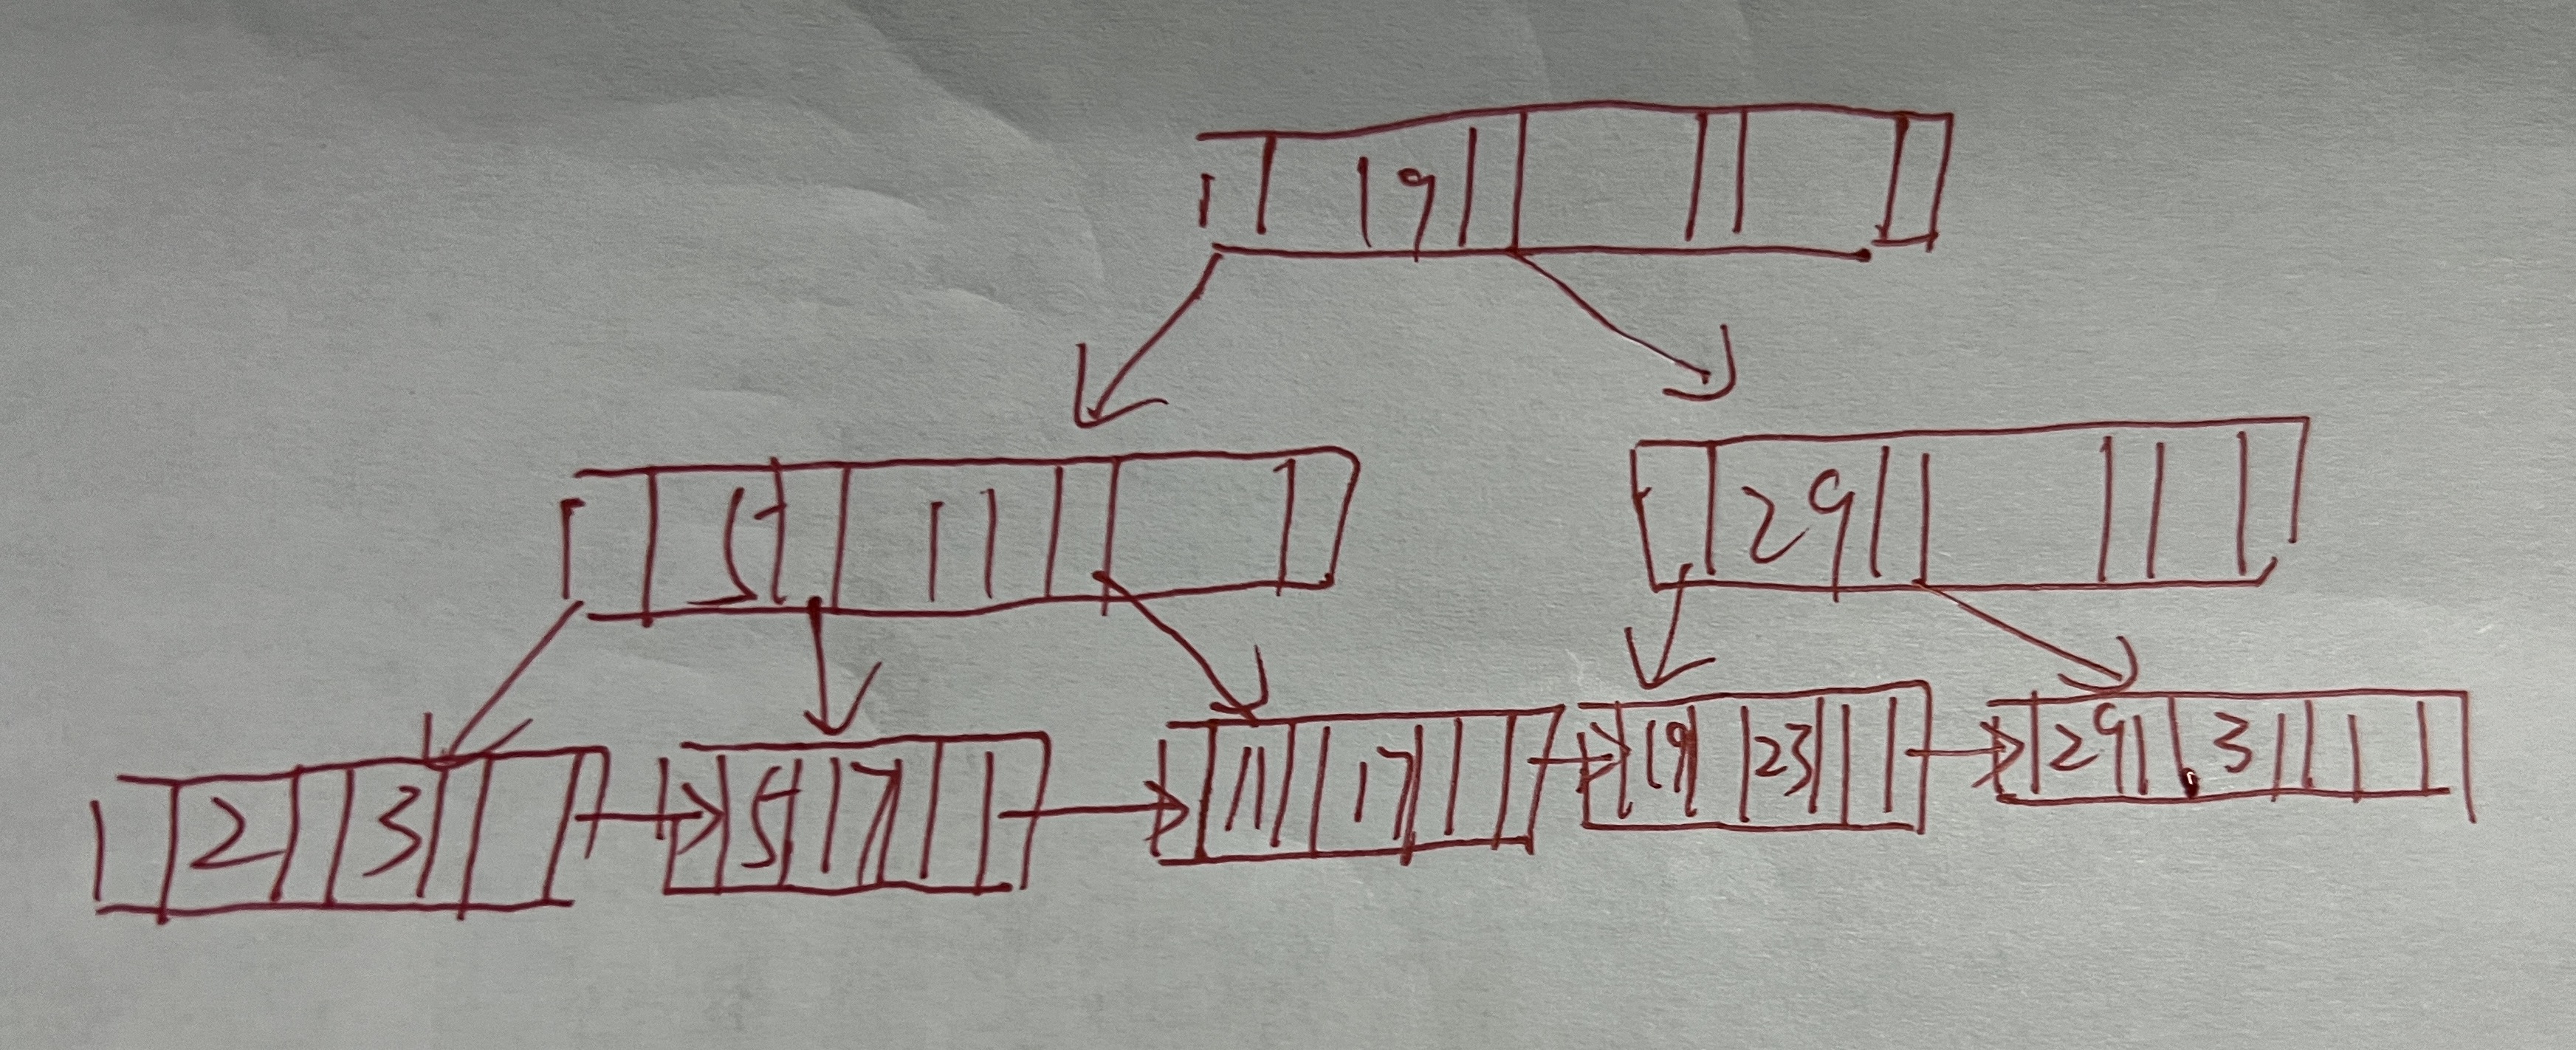 19
5 11 29
2 3 5 7 11 17 19 23 29 31